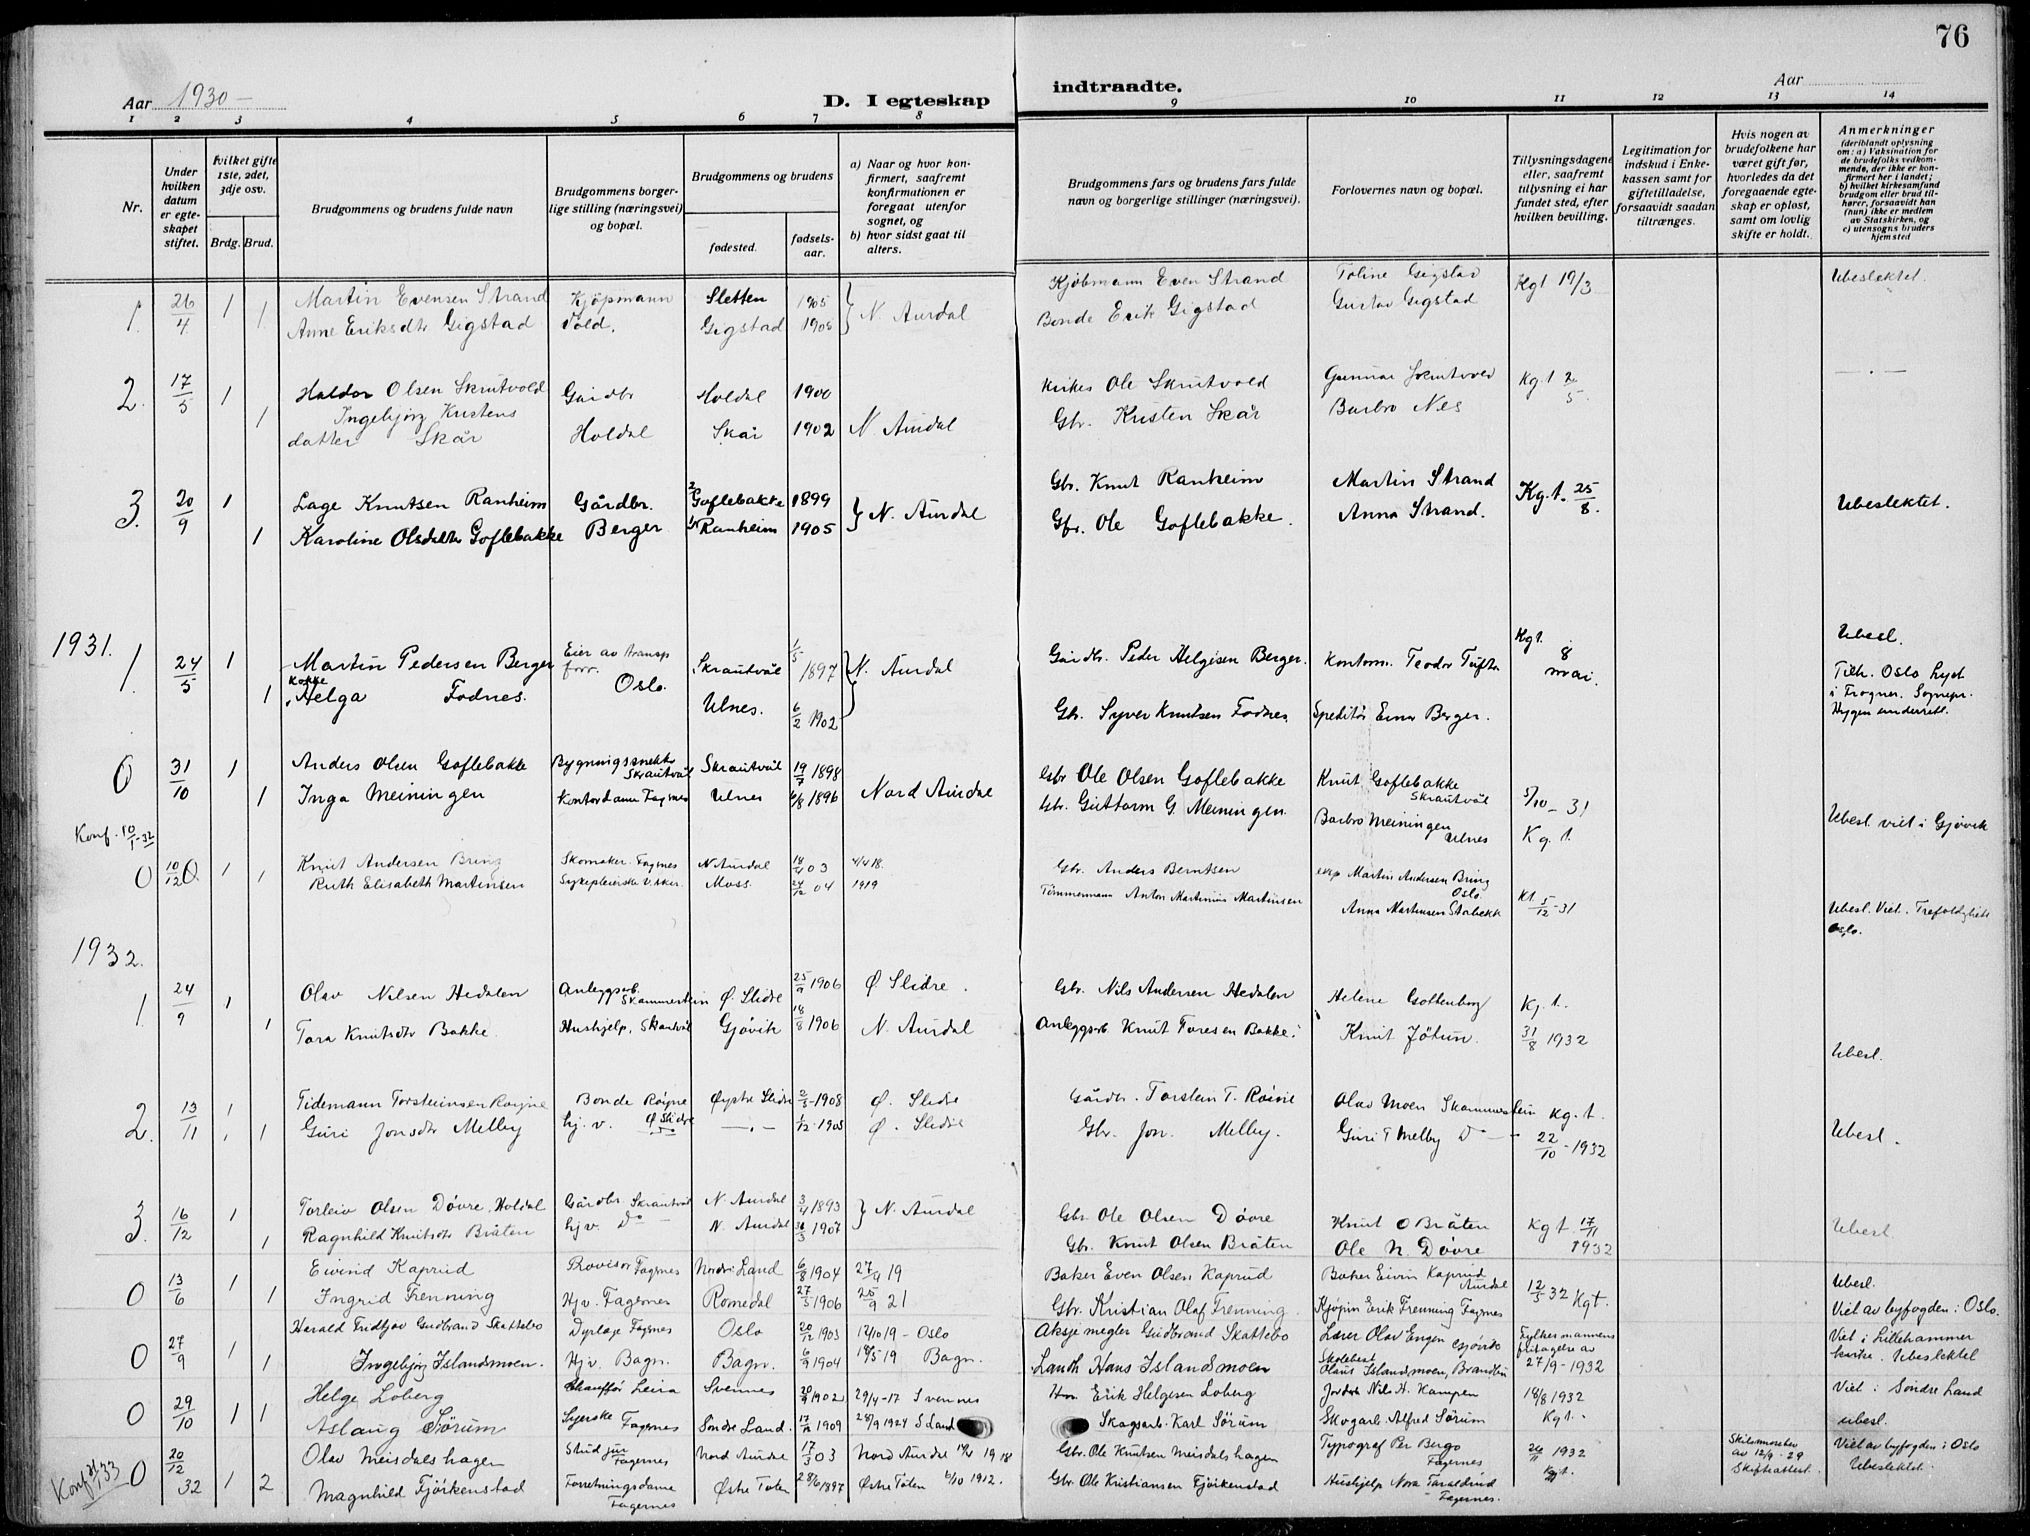 76
Aar 1930 —
D. I egteskap
indtraadte.
Aar
1 2 3 4 5 6 7 8 9 10 11 12 13 14
Nr.
Under hvilken datum er egteskapet stiftet.
Hvilket gifte 1ste, 2det, 3dje osv.
Brdg. Brud.
Brudgommens og brudens fulde navn
Brudgommens borgerlige stilling (næringsvei) og bopæl.
Brudgommens og brudens
fødested.
fødselsaar.
a) Naar og hvor konfirmert, saafremt konfirmationen er foregaat utenfor sognet, og
b) hvor sidst gaat til alters.
Brudgommens fars og brudens fars fulde navn og borgerlige stillinger (næringsvei).
Forlovernes navn og bopæl.
Tillysningsdagene eller, saafremt tillysning ei har fundet sted, efter hvilken bevilling.
Legitimation for indskud i Enkekassen samt for giftetilladelse, forsaavidt saadan tiltrænges.
Hvis nogen av brudefolkene har været gift før, hvorledes da det foregaaende egteskap er opløst, samt om lovlig skifte er holdt.
Anmerkninger
(deriblandt oplysning om: a) Vaksination for de brudefolks vedkommende, der ikke er konfirmert her i landet; b) hvilket kirkesamfund brudgom eller brud tilhører, forsaavidt han (hun) ikke er medlem av Statskirken, og c) utensogns bruders hjemsted
1. 26/4 1 Martin Evensen Strand Kjøpmann Sletten 1905 } N. Aurdal Kjøbmann Even Strand Toline Gigstad Kgt 19/3 Ubeslektet.
1 Anne Eriksdtr Gigstad Vold. Gigstad 1905 Bonde Erik Gigstad Gustav Gigstad
2. 17/5 1 Haldor Olsen Skrutvold Gårdbr Holdal 1900 Kirkes Ole Skrutvold Gunnar Skrutvold Kg.t 2/5. — . —
1 Ingebjørg Kristens
datter Skår Holdal Skår 1902 N. Aurdal Gbr. Kristen Skår Barbro Nes
3. 20/9 1 Lage Knutsen Ranheim Gårdbr. Goflebakke 1899 } N. Aurdal Gbr. Knut Ranheim Martin Strand Kg.t. 25/8. Ubeslektet.
1 Karoline Olsdatter Goflebakke Berger Ranheim 1905 Gbr. Ole Goflebakke. Anna Strand.
1931.
1. 24/5 1 Martin Pedersen Berger Eier av transp. forr. Oslo. Skrautvål 1/5 1897 } N. Aurdal Gårdbr. Peder Helgesen Berger. Kontorm. Teodor Tufte Kgt. 8 mai. Ubesl.
1 Helga Fodnes. Ulnes. 6/2 1902 Gbr. Syver Knutsen Fodnes Speditør Einar Berger. Tilh. Oslo lyst i Frogner. Sognepr. Hygen underrett.
0 31/10 1 Anders Olsen Goflebakke Bygningssnekker Skrautvål Skrautvål 19/7 1898 Nord Aurdal Gbr Ole Olsen Goflebakke Knut Goflebakke Skrautvål 5/10 – 31 Kg.t.
1 Inga Meiningen Kontordame Fagernes Ulnes 6/8 1896 Gbr. Guttorm G. Meiningen. Barbro Meiningen Ulnes Ubesl. viet i Gjøvik
Konf. 10/1-32
0 10/12 1 Knut Andersen Bring Skomaker. Fagernes N Aurdal 03 4/4 18. Gbr. Anders Berntsen Martin Andersen Bring Oslo Kt 5/12-31
1 Ruth Elisabeth Martinsen Sykepleierske Moss 24/12 04 1919 Tømmermann Anton Martinius Martinsen Anna Martinsen Stabekk Ubesl. Viet. Trefoldighets Oslo.
1932.
1. 24/9 1 Olav Nilsen Hedalen Anleggsarb. Skammestein Ø. Slidre 25/9 1906 Ø Slidre. Gbr. Nils Andersen Hedalen Helene Gottenborg Kg.t.
1 Tora Knutsdtr Bakke. Hushjelp, Skrautvål Gjøvik 18/8 1906 N. Aurdal Anleggsarb. Knut Toresen Bakke. Knut Jøtun. 31/8 1932 Ubesl.
2. 13/11 1 Tidemann Torsteinsen Røyne Bonde Røyne Ø Slidre Øystre Slidre 2/5-1908 Ø. Slidre Gårdbr. Torstein T. Røine Olav Moen Skammestein kg.t.
1 Guri Jonsdtr Melby hj. v. — . — 1/12-1905 Ø. Slidre Gbr. Jon. Melby. Guri T Melby Do — 22/10-1932 Ubesl.
3. 16/12 1 Torleiv Olsen Døvre, Holdal Gårdbr Skrautvål N. Aurdal 3/4 1893 } N. Aurdal Gbr Ole Olsen Døvre Knut O Bråten Kgt 17/11 1932 Ubesl
1 Ragnhild Knutsdtr Bråten hjv. Do — N. Aurdal 30/3 1907 Gbr. Knut Olsen Bråten Ole N. Døvre
0 13/6 1 Eivind Kaprud Provisor Fagernes Nordre Land 6/8 1904 27/9 19 Baker Even Olsen Kaprud Baker Eivin Kaprud Aurdal 12/5 32 Kgt. Ubesl.
1 Ingrid Frenning Hjv. Fagernes Romedal 27/5 1906 25/9 21 Gbr. Kristian Olaf Frenning. Kjøpm Erik Frenning Fagernes Viet av byfogden i Oslo.
0 27/9 1 Harald Fridtjov Gudbrand Skattebo Dyrlæge Fagernes Oslo 20/12 1903 12/10 19 – Oslo Aksjemegler Gudbrand Skattebo Lærer Olav Engen Gjøvik Fylkesmannens fritagelse av 27/9-1932 Viet i Lillehammer kirke. Ubeslektet
1 Ingebjørg Islandsmoen. Hjv. Bagn. Bagn. 6/9 1904 18/5 19 Bagn. Landh. Hans Islandsmoen Skolebest Olaus Islandsmoen, Brandbu
0 29/10 1 Helge Loberg Chauffør Leira Svennes 20/9 1902 29/4-17 Svennes Erik Helgesen Loberg Jordbr. Nils H. Kampen 18/8 1932 Kgt. Viet i Søndre Land
1 Aslaug Sørum Syerske Fagernes Søndre Land. 1909 28/9 1924 S Land Skogsarb. Karl Sørum Skogarb. Alfred Sørum ubesl.
0 20/12 32 1 Olav Meisdalshagen Stud jur Fagernes Nord Aurdal 17/3 03 Nord Aurdal 1918 Gbr. Ole Knutsen Meisdalshagen Typograf Per Bergo Fagernes 26/11 1932 Kgt. Skilsmissebev av 12/9-29 Skifteattest. Viet av byfogden i Oslo Ubeslektet.
Konf 33 2 Magnhild Fjörkenstad Forretningsdame Fagernes Østre Toten 28/6 1897 Østre Toten 6/10 1912. Gbr. Ole Kristiansen Fjörkenstad Hushjelp Nora Taraldrud Fagernes.